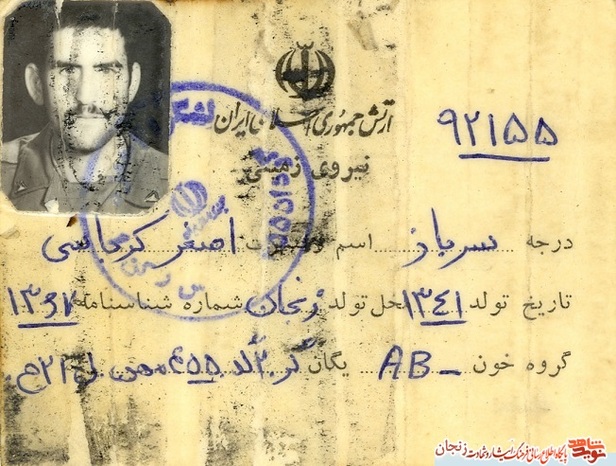 ارتش جمهوری اسلامی ایران
۹۲۱۵۵
نیروی زمینی
درجه سرباز اسم و شهرت اصغر کرماسی
تاریخ تولد ۱۳۴۱ محل تولد زنجان شماره شناسنامه ۱۳۶۷
گروه خون AB- یگان گر ۲ گد ۴۵۵ ل ۲۱ ح
لشگر
نوید شاهد
پایگاه اطلاع رسانی فرهنگ ایثار و شهادت زنجان